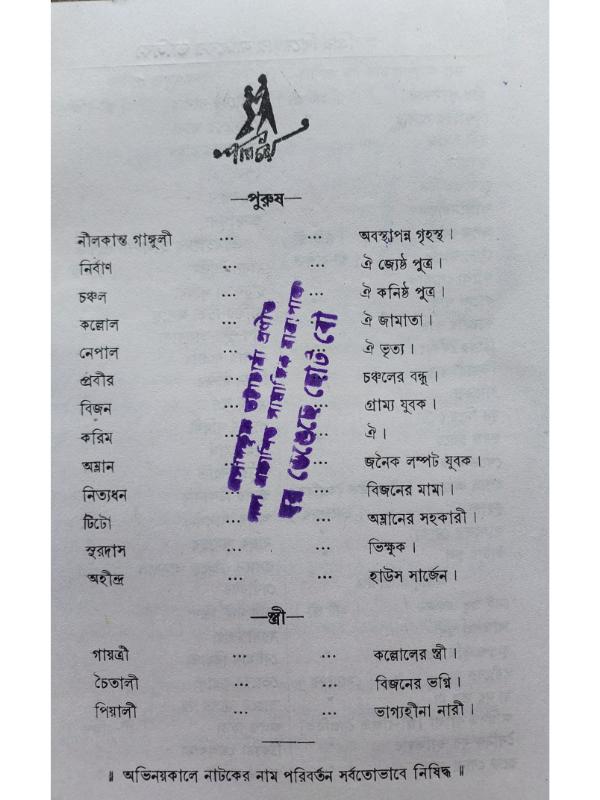 পরিচয়
—পুরুষ—
নীলকান্ত গাঙ্গুলী ... ... অবস্থাপন্ন গৃহস্থ।
নির্বাণ ... ... ঐ জ্যেষ্ঠ পুত্র।
চঞ্চল ... ঐ কনিষ্ঠ পুত্র।
কল্লোল ... ঐ জামাতা।
নেপাল ... ঐ ভৃত্য।
প্রবীর ... চঞ্চলের বন্ধু।
বিজন ... গ্রাম্য যুবক।
করিম ... ঐ।
অম্লান ... ... জনৈক লম্পট যুবক।
নিত্যধন ... ... বিজনের মামা।
টিটো ... ... অম্লানের সহকারী।
সুরদাস ... ... ভিক্ষুক।
অহীন্দ্র ... ... হাউস সার্জেন।
—স্ত্রী—
গায়ত্রী ... ... কল্লোলের স্ত্রী।
চৈতালী ... ... বিজনের ভগ্নি।
পিয়ালী ... ... ভাগ্যহীনা নারী।
॥ অভিনয়কালে নাটকের নাম পরিবর্তন সর্বতোভাবে নিষিদ্ধ ॥
ভট্টাচার্য্য প্রণীত
সামাজিক যাত্রাপালা
ঘর ভেঙেছে ছোট বৌ